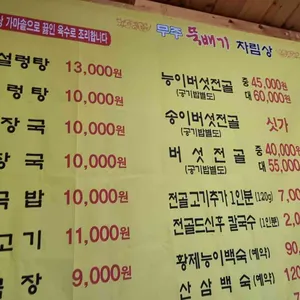 가마솥으로 끓인 육수로 조리합니다
무주 뚝배기 차림상
설렁탕 13,000원
렁탕 10,000원
장국 10,000원
장국 10,000원
국밥 10,000원
고기 11,000원
장 9,000원
능이버섯전골 중 45,000원
(공기밥별도) 대 60,000원
송이버섯전골 싯가
(공기밥별도)
버섯전골 중 40,000
(공기밥별도) 대 55,000
전골고기추가 1인분 (120g) 7,0
전골드신후 칼국수 (1인분) 2,0
황제능이백숙 (예약) 90
산삼백숙 (예약) 120